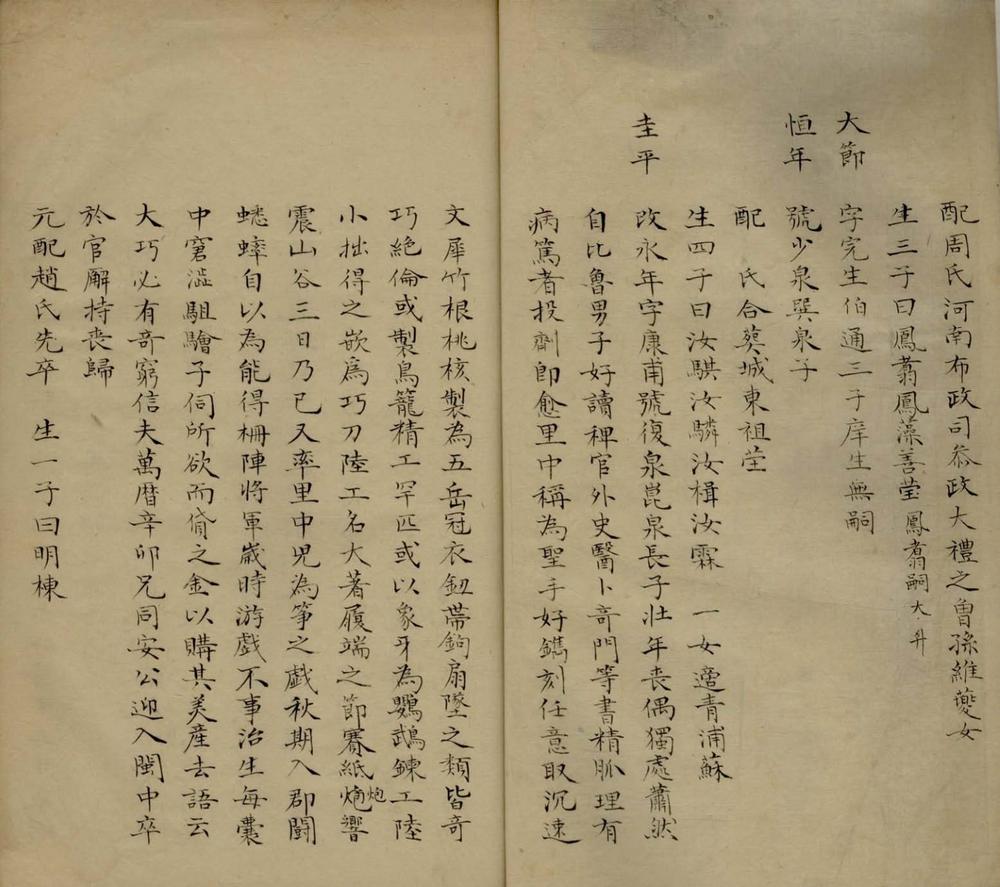 配周氏河南布政司叅政大禮之曾孫維夔女
生三子曰鳳翥鳳藻善瑩鳳翥嗣大升
大節
字完生伯通三子庠生無嗣
恒年
號少泉巽泉子
配　氏合葬城東祖塋
生四子曰汝騏汝驎汝楫汝霖　一女適青浦蘇
圭平
改永年字康甫號復泉崑泉長子壯年喪偶獨處蕭然
自比魯男子好讀稗官外史醫卜奇門等書精脈理有
病篤者投劑即愈里中稱為聖手好鐫刻任意取沉速
文犀竹根桃核製為五岳冠衣鈕帶鉤扇墜之類皆奇
巧絕倫或製鳥籠精工罕匹或以象牙為鸚鵡鍊工陸
小拙得之嵌爲巧刀陸工名大著履端之節賽紙炮炮響
震山谷三日乃已又率里中児為箏之戯秋期入郡鬪
蟋蟀自以為能得柵陣將軍歲時游戯不事治生每囊
中窘澁駔驓子伺所欲而貸之金以購其美産去語云
大巧必有奇窮信夫萬曆辛卯兄同安公迎入閩中卒
於官廨持喪歸
元配趙氏先卒　生一子曰明棟